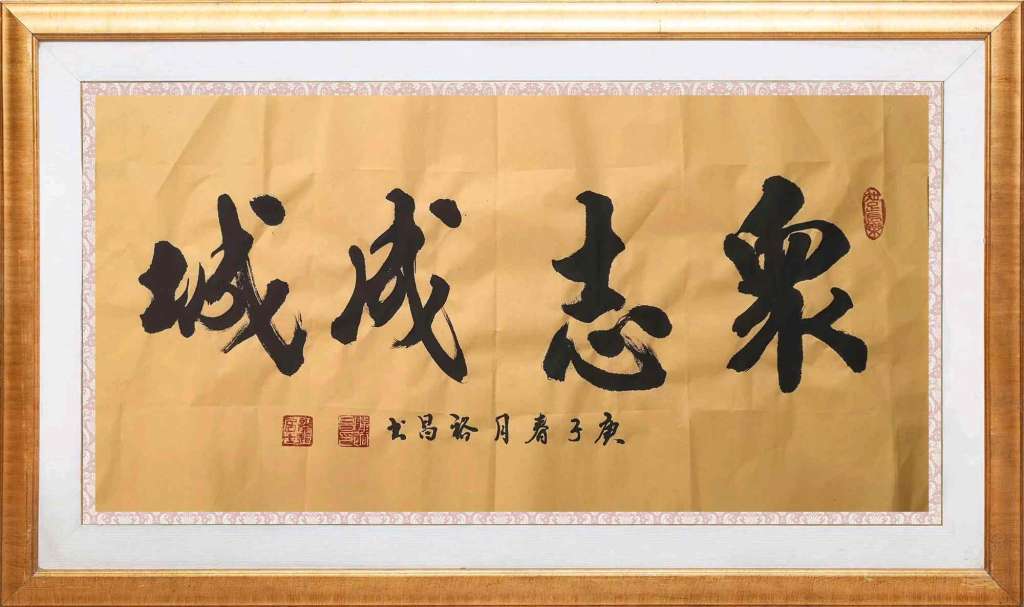 眾志成城
庚子春月裕昌書